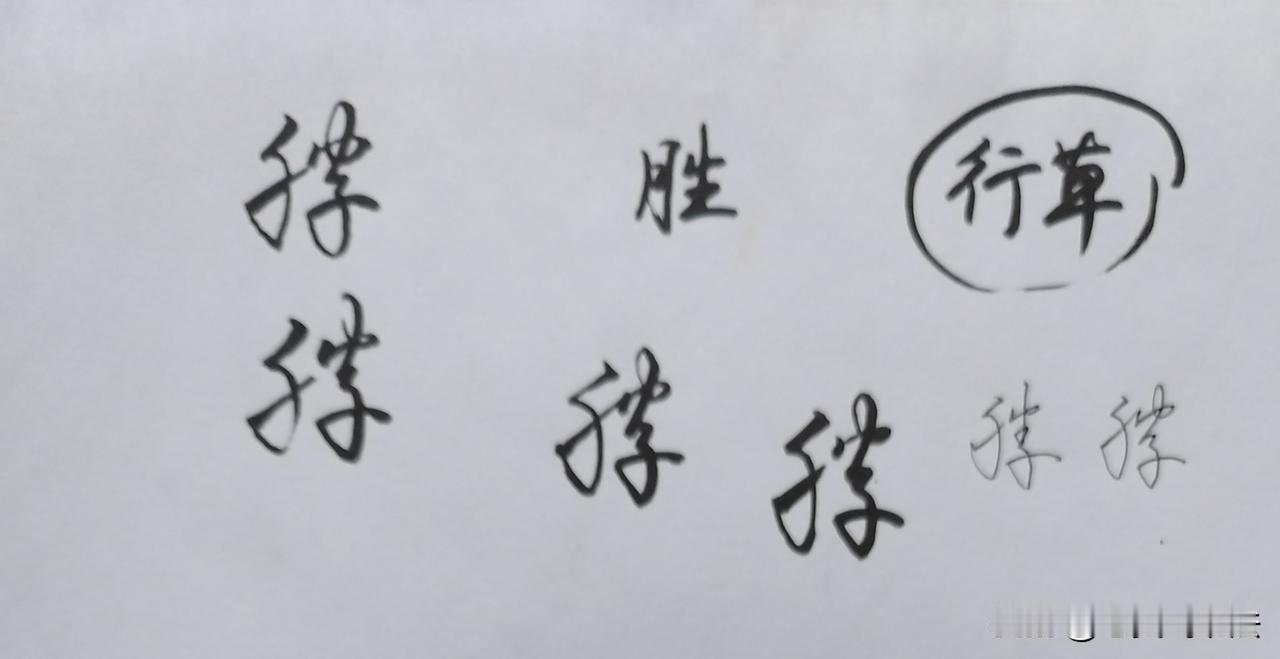 胜 胜 行草
胜 胜 胜 胜 胜